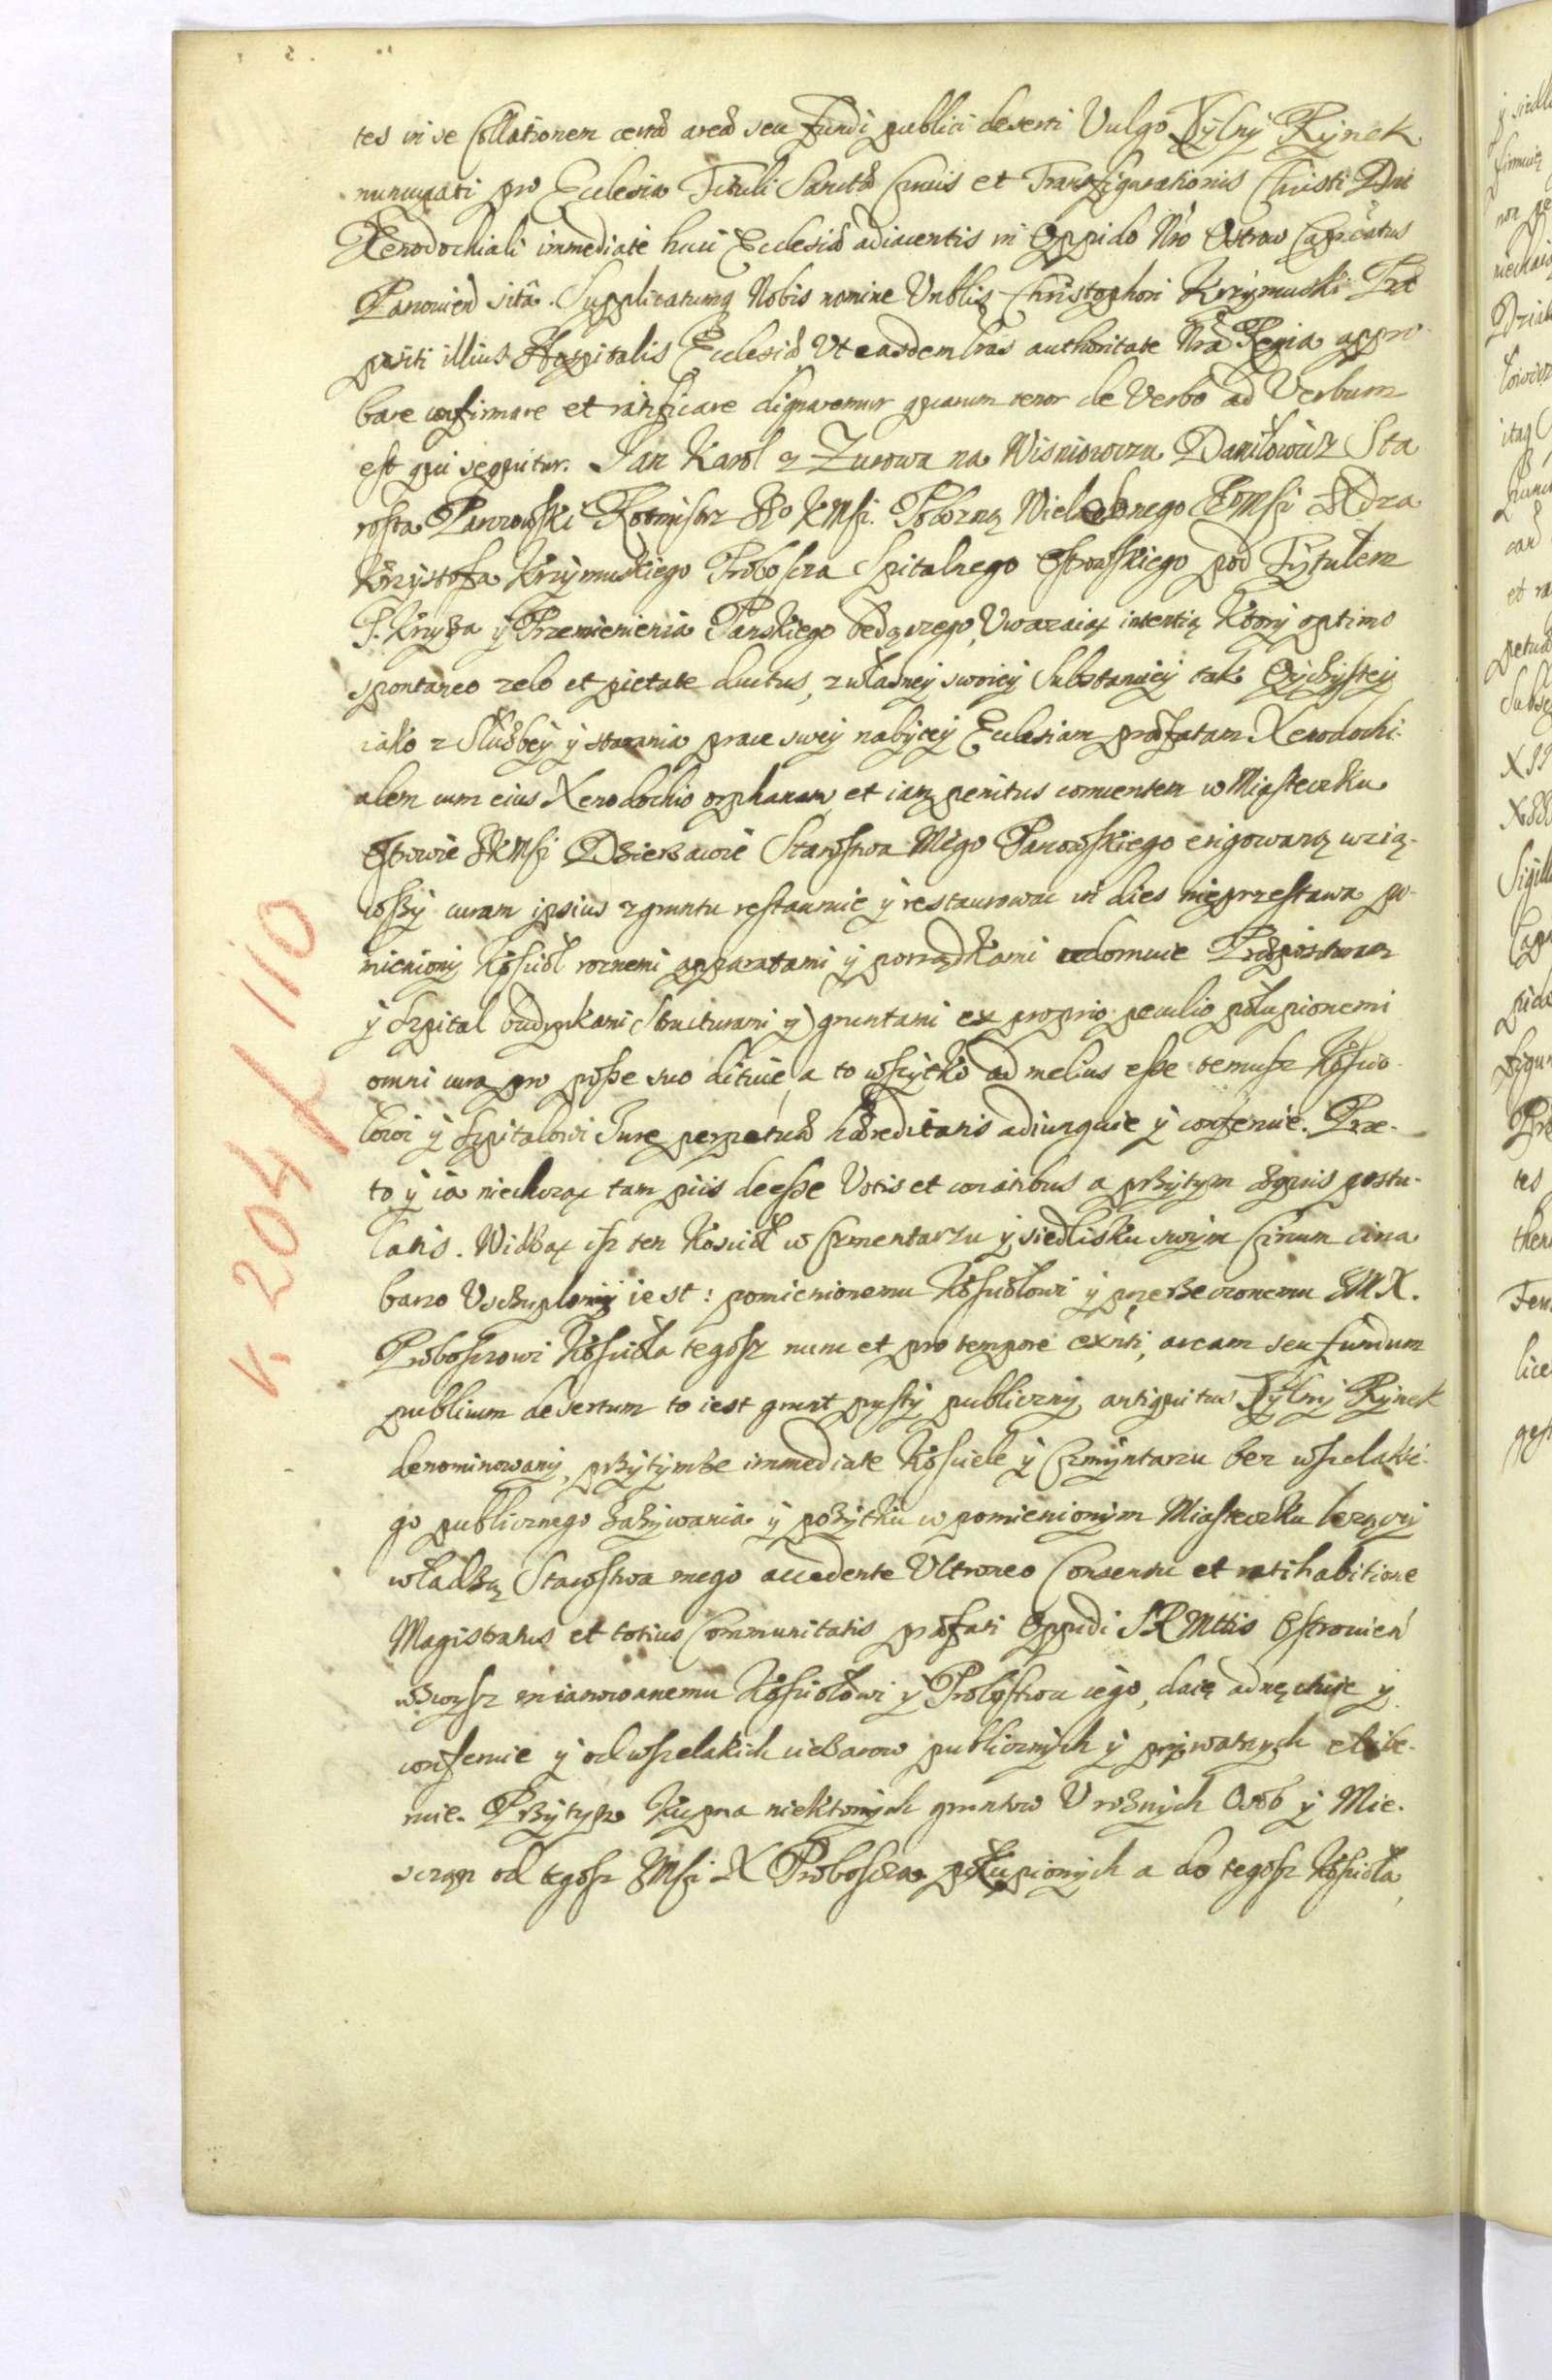 tes in se Collationem certæ areæ seu fundi publici deserti Vulgo Tÿlnÿ Rÿnek
nuncupati pro Ecclesia Tituli Sanctæ Crucis et Transfigurationis Christi Dni
Xenodochiali immediate huic Ecclesiæ adiacentis in Oppido Nro Ostrow Capitaneatus
Parcouien sitâ. Supplicatumq Nobis nomine Vnblis Christophori Krzÿmuski Præ
positi illius Hospitalis Ecclesiæ Vt easdem lras authoritate Nra Regia appro
bare confirmare et ratificare dignaremur quarum tenor de Verbo ad Verbum
est qui sequitur. Jan Karol z Zurowa na Wisniowczu Daniłowicz Sta
rosta Parczowski Rotmistrz JKo KMsci. Poborzną Wielebnego JeoMsci Xdza
Krzÿstofa Krzÿmuskiego Proboscza Spitalnego Ostrowskiego pod Tÿtułem
S. Krzyża ÿ Przemienienia Panskiego będączego, Uwazaiąc intentią Ktorÿ optimo
spontaneo zelo et pietate ductus, z własneÿ swoieÿ Substancieÿ tak Oÿczÿsteÿ
iako z Służbeÿ ÿ starania prace sweÿ nabÿteÿ Ecclesiam præfatam Xenodochi-
alem cum eius Xenodochio orphanam et iam penitus conuentem w Miasteczku
Ostrowie JKMsci Dzierżawie Starostwa Mego Parczowskiego erigowaną wzią-
wszÿ curam ipsius z gruntu restauruie ÿ restaurowac in dies nieprzestawa po-
mienionÿ Kosciół roznemi apparatami ÿ porządkami adornuie Præposituram
ÿ Szpital budynkami Structurami ÿ gruntami ex proprio peculio pokupionemi
omni cura pro posse suo dituie, a to wszÿtko ad melius esse temusz Kościo-
łowi ÿ Szpitalowi Jure perpetuæ hæreditatis adiunguie ÿ conferuie. Prze-
to ÿ ia niechcząc tam piis deesse Votis et conatibus a przÿtÿm æquis postu-
latis. Widząc isz ten Kosciół w Czmentarzu ÿ siedlisku swÿm Circum circa
barzo Usczuplonÿ iest: pomienionemu Kosciołowi ÿ przerzeczonemu JM X.
Proboszowi Kościoła tegosz nunc et pro tempore exnti, aream seu fundum
publicum desertum to iest grunt pustÿ publicznÿ, antiquitus Tÿlnÿ Rÿnek
denominowanÿ, przÿtÿmże immediate Kosciele ÿ Czmÿntarzu bez wszelakie-
go publicznego zażÿwania ÿ pożÿtku w pomienionÿm Miasteczku leżącÿ
władzą Starostwa mego accedente Ultroneo Consensu et ratihabitione
Magistratus et totius Communitatis præfati Oppidi SRMttis Ostrouień
wzwÿsz mianowanemu Kosciołowi ÿ Probostwu iego, daię adnectuie ÿ
conferuie ÿ od wszelakich ciężarow publicznÿch ÿ prÿwatnÿch elibe-
ruie. Przÿtÿm Kupna niektorÿch gruntow U roznÿch Osob ÿ Mie-
sczan od tegosz JMsci X Proboscza pokupionÿch a do tegosz Kościoła,
V. 204 f 110